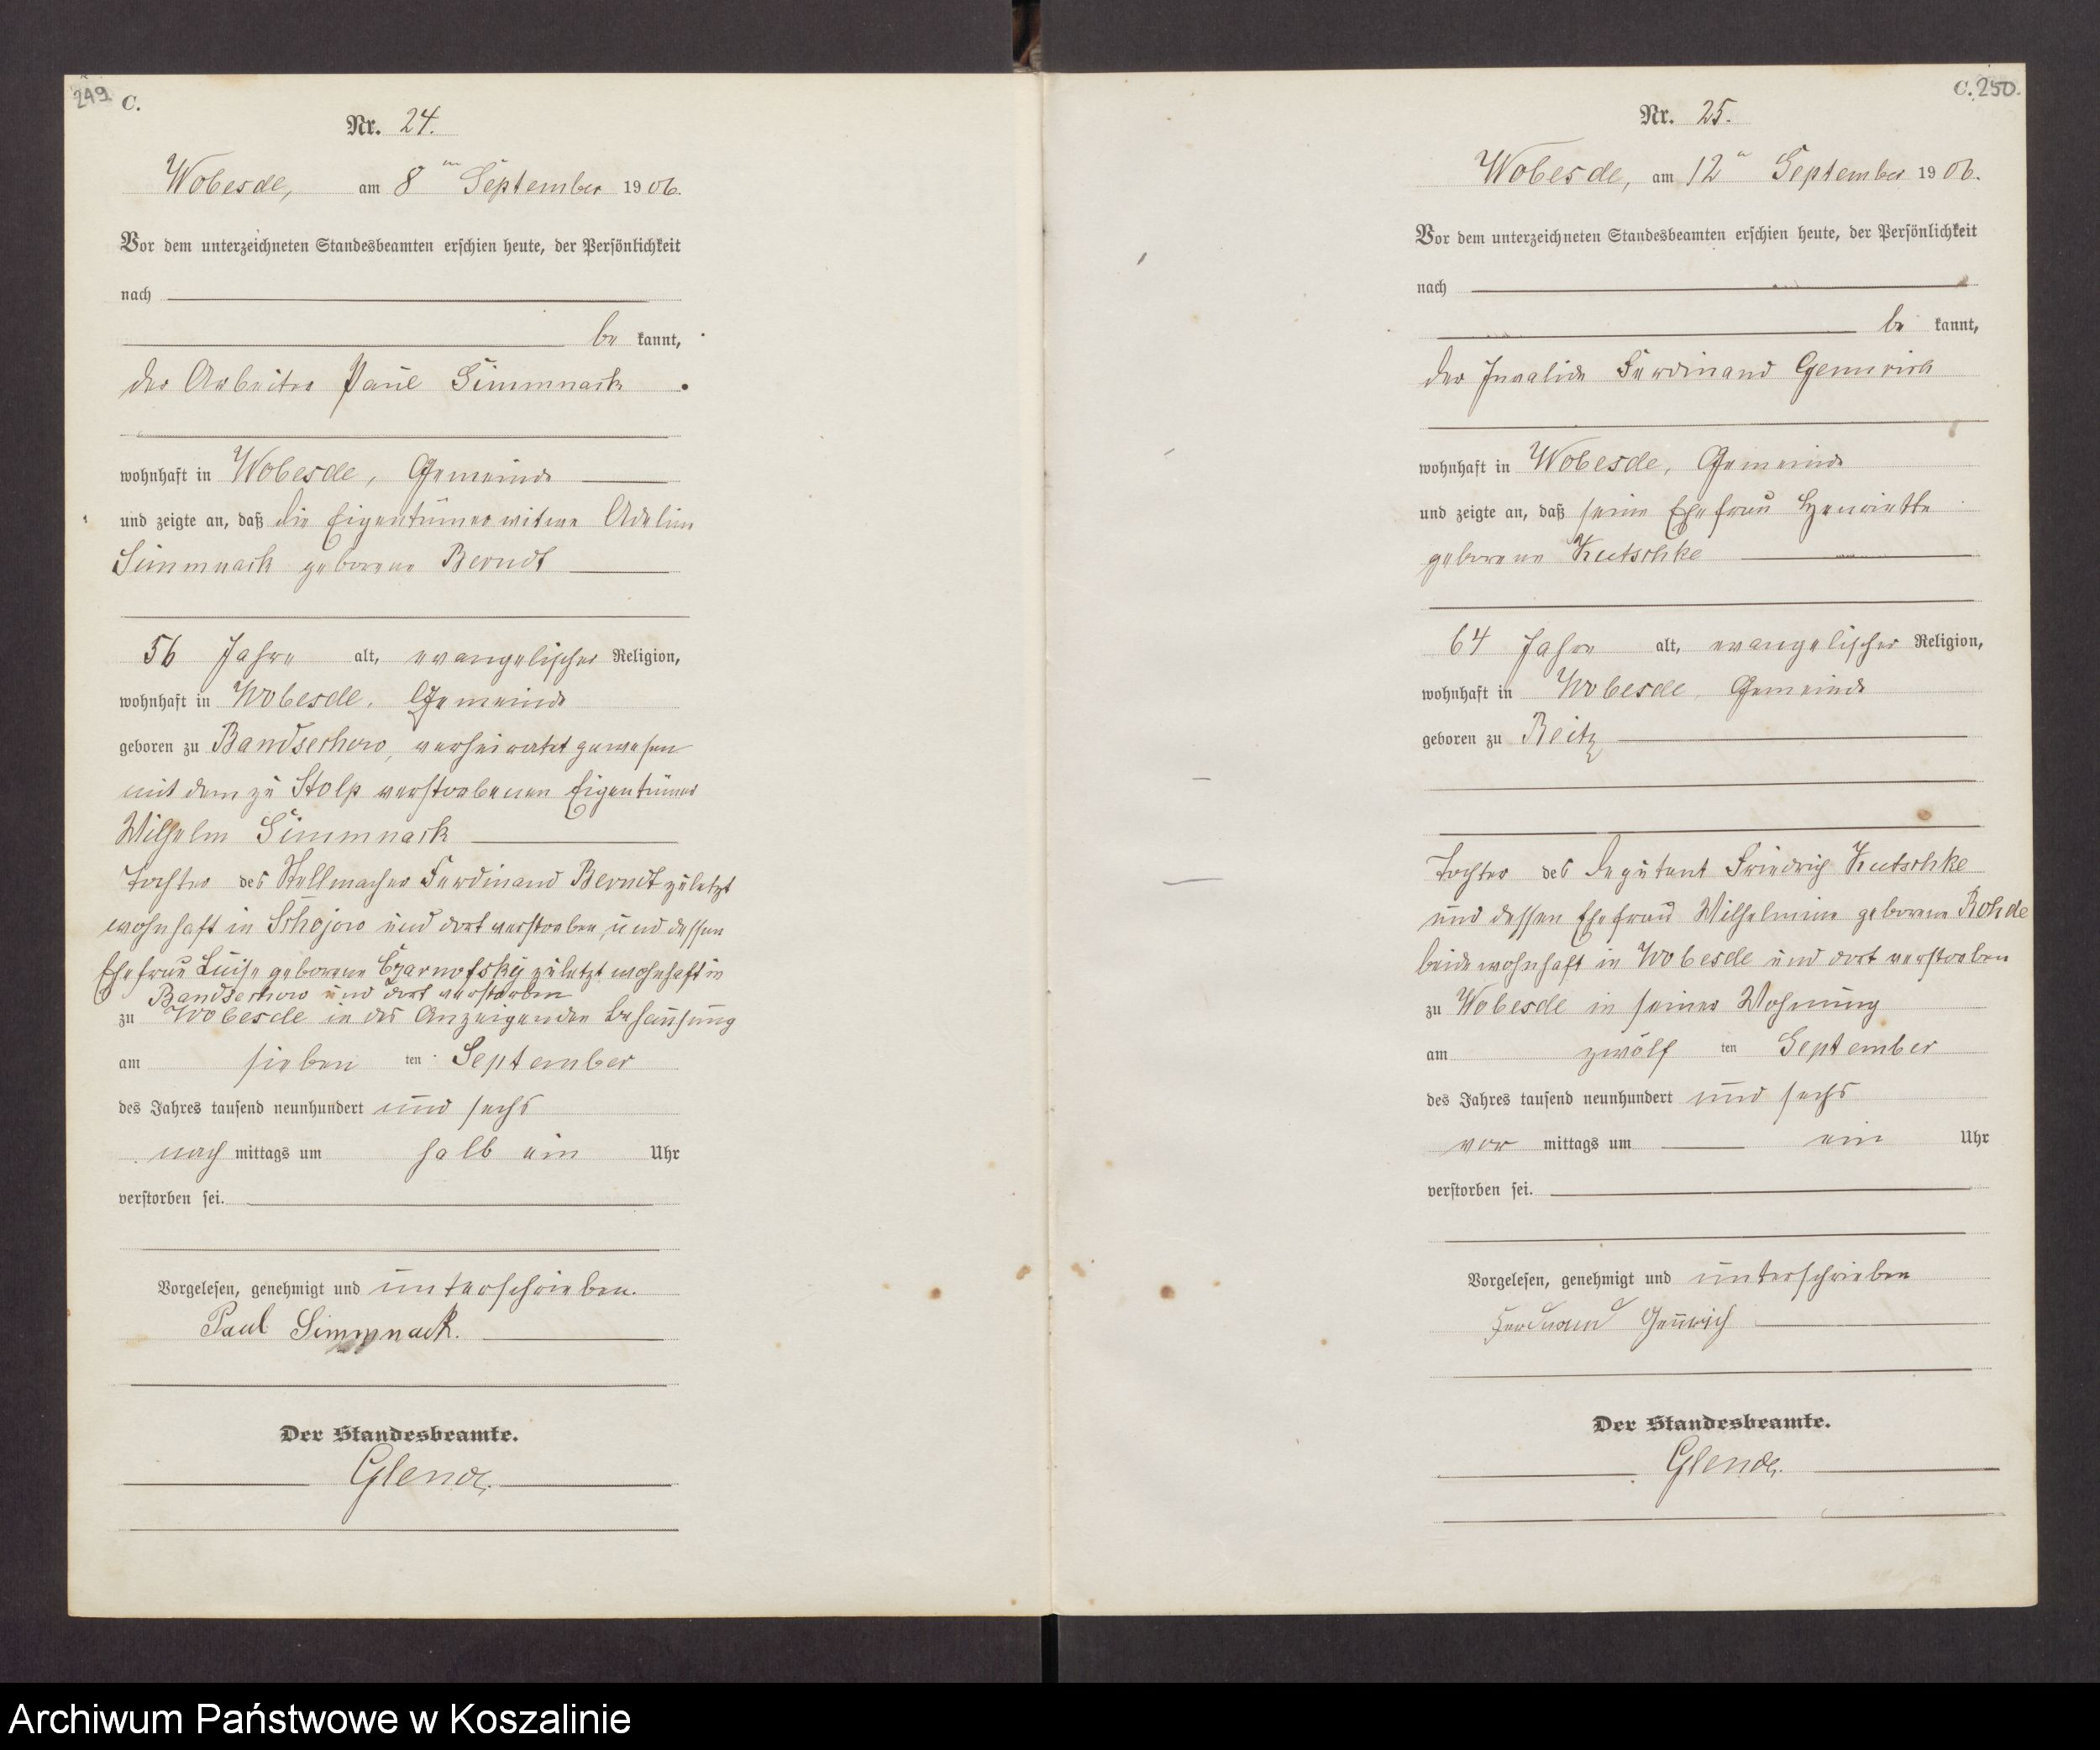 249
C.
Nr. 24.
Wobesde, am 8ten September 1906.
Vor dem unterzeichneten Standesbeamten erschien heute, der Persönlichkeit
nach
be kannt,
der Arbeiter Paul Simmnack
wohnhaft in Wobesde, Gemeinde
und zeigte an, daß die Eigentümerwitwe Adeline
Simmnack geborene Berndt
56 Jahre alt, evangelischer Religion,
wohnhaft in Wobesde, Gemeinde
geboren zu Bandsechow, verheiratet gewesen
mit dem zu Stolp verstorbenen Eigentümer
Wilhelm Simmnack
Tochter des Stellmacher Ferdinand Berndt zuletzt
wohnhaft in Schojow und dort verstorben, und dessen
Ehefrau Luise geborene Czarnofsky zuletzt wohnhaft in
Bandsechow und dort verstorben
zu Wobesde in des Anzeigenden Behausung
am sieben ten September
des Jahres tausend neunhundert und sechs
nach mittags um halb ein Uhr
verstorben sei.
Vorgelesen, genehmigt und unterschrieben.
Paul Simmnack.
Der Standesbeamte.
Glende.
C. 250.
Nr. 25.
Wobesde, am 12ten September 1906.
Vor dem unterzeichneten Standesbeamten erschien heute, der Persönlichkeit
nach
be kannt,
der Invalide Ferdinand Gennrich
wohnhaft in Wobesde, Gemeinde
und zeigte an, daß seine Ehefrau Henriette
geborene Kutschke
64 Jahre alt, evangelischer Religion,
wohnhaft in Wobesde, Gemeinde
geboren zu Reitz
Tochter des Deputant Friedrich Kutschke
und dessen Ehefrau Wilhelmine geborene Rohde
beide wohnhaft in Wobesde und dort verstorben
zu Wobesde in seiner Wohnung
am zwölf ten September
des Jahres tausend neunhundert und sechs
vor mittags um ein Uhr
verstorben sei.
Vorgelesen, genehmigt und unterschrieben
Ferdinand Gennrich
Der Standesbeamte.
Glende.
Archiwum Państwowe w Koszalinie